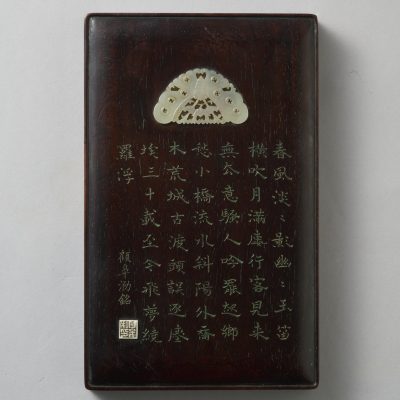 春風淡〻影幽〻玉笛
橫吹月滿廔行客見來
無厺意騷人吟罷起鄉
愁小橋流水斜陽外喬
木荒城古渡頭誤逐塵
埃三十載至今飛夢繞
羅浮
顧皋泐銘